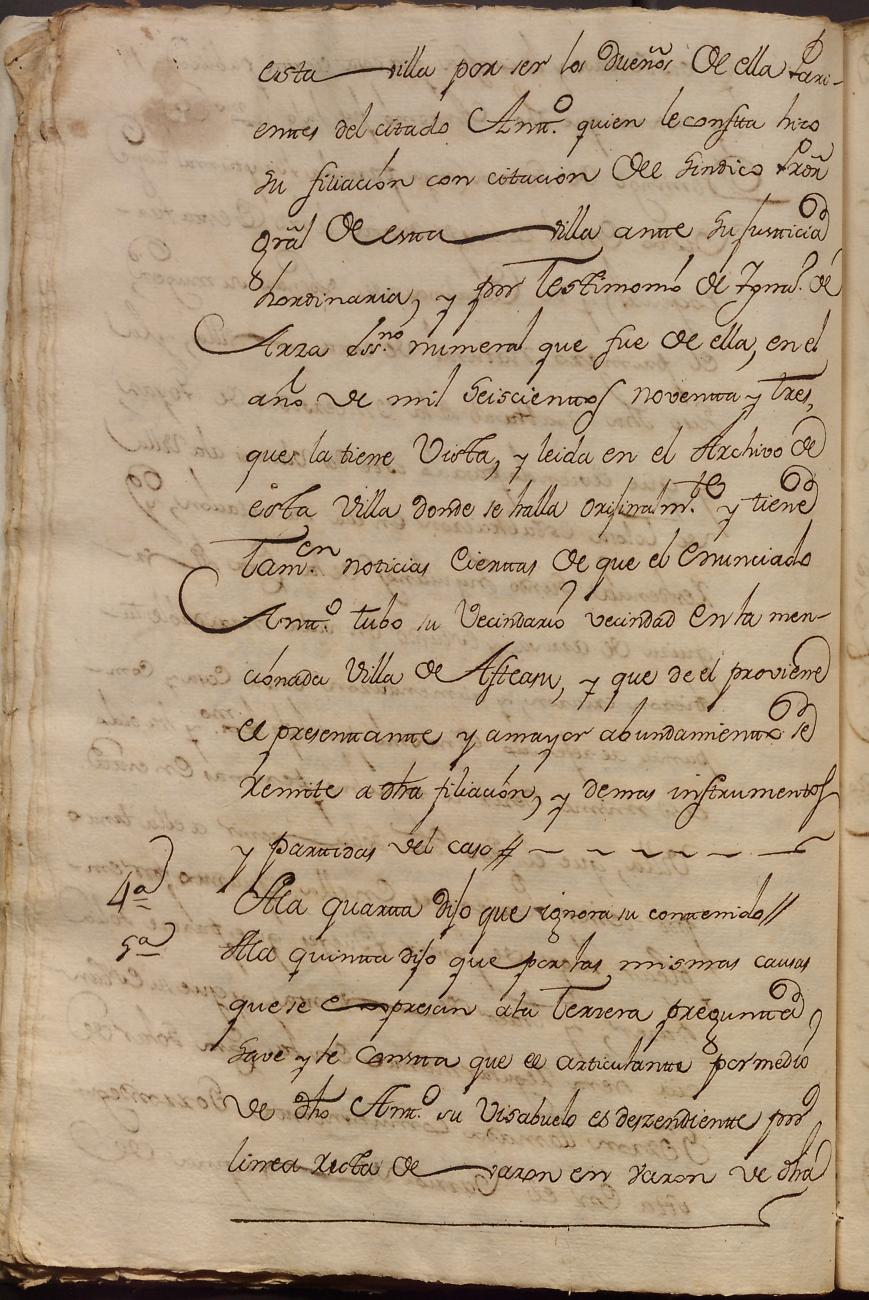 esta villa por ser los dueños de ella Pari-
entes del citado Antt.º quien le constta hizo
su filiación con citación del Sindico Prõr
grãl de estta villa antte su justicia
hordinaria, y por Testimonio de Ygna.º de
Arza Ess.no numeral que fue de ella, en el
año de mil seiscienttos noventta y tres,
que la tiene Vista, y leida en el Archivo de
esta Villa donde se halla originalm.te y tiene
Tam.en noticias Cierttas de que el enunciado
Antt.º tubo su Vecindario vecindad en la men-
cionada Villa de Asteasu, y que de el proviene
el presenttantte y a mayor abundamientto se
Remite a dha filiación, y demas instrumentos
y parttidas del caso//
4ª Ala quartta dijo que ignora su contenido//
5ª Ala quintta dijo que por las mismas causas
que se expresan ala Terzera preguntta
save y le Constta que el articulantte por medio
de dho Antt.º su Visabuelo es deszendientte por
linea recta de varon en varon de dha